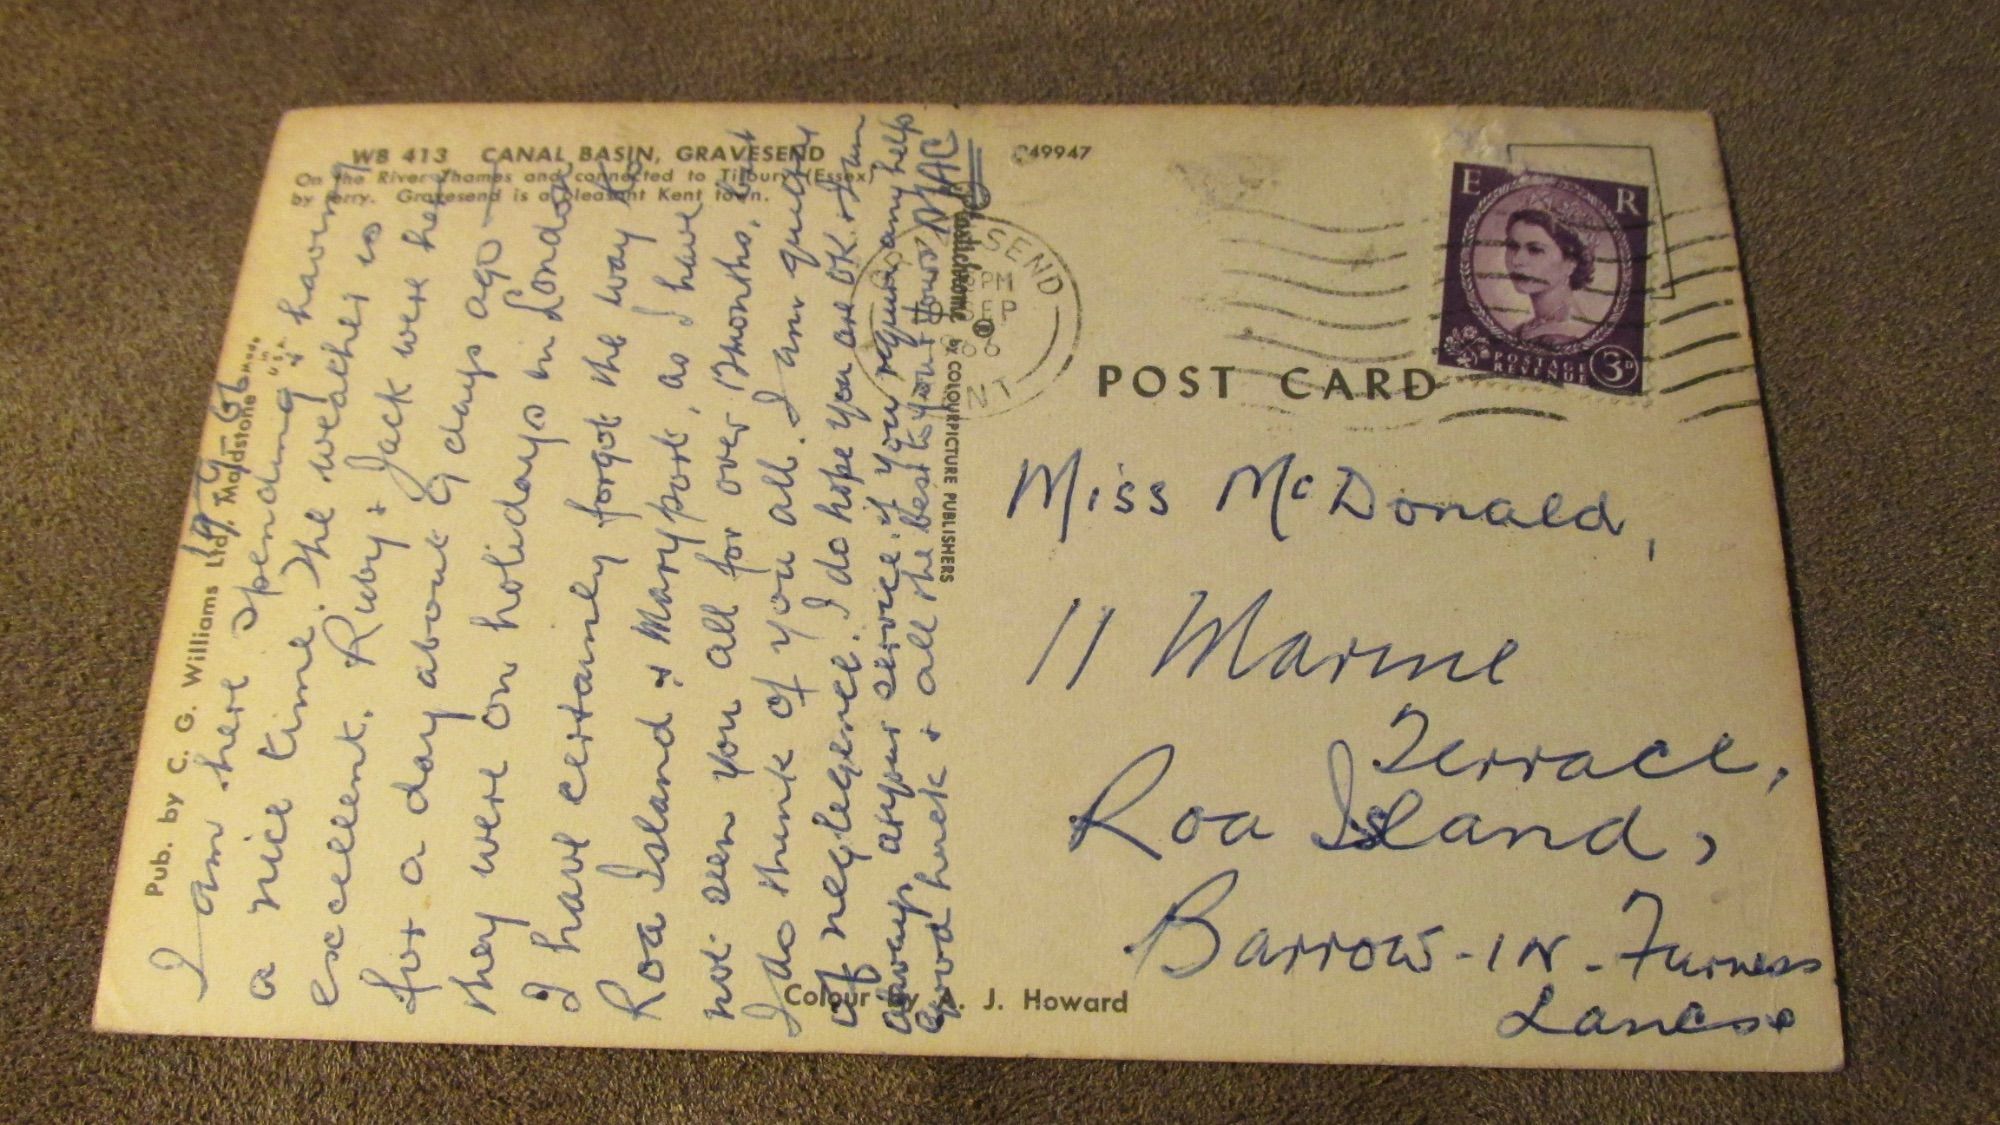 WB 413 CANAL BASIN, GRAVESEND
On the River Thames and connected to Tilbury (Essex)
by ferry. Gravesend is a pleasant Kent town.
Pub. by C. G. Williams Ltd. Maidstone
Made
in
U.S.A.
19-9-66
I am here spending having
a nice time. The weather is
excellent. Ruby & Jack were here
for a day about 9 days ago
they were on holidays in London
I have certainly forgot the way to
Roa Island & Maryport, as I have
not seen you all for over 12 months, but
I do think of you all. I am quite
of neglegence. I do hope you are OK. I am
always at your service if you require any help
good luck & all the best to you Yours MAC
Plastichrome ® by COLOURPICTURE PUBLISHERS
Colour by A. J. Howard
C49947
GRAVESEND
PM
SEP
KENT
POST CARD
E R
POSTAGE
REVENUE
3D
Miss McDonald,
11 Marine
Terrace,
Roa Island,
Barrow-IN-Furness
Lancs.